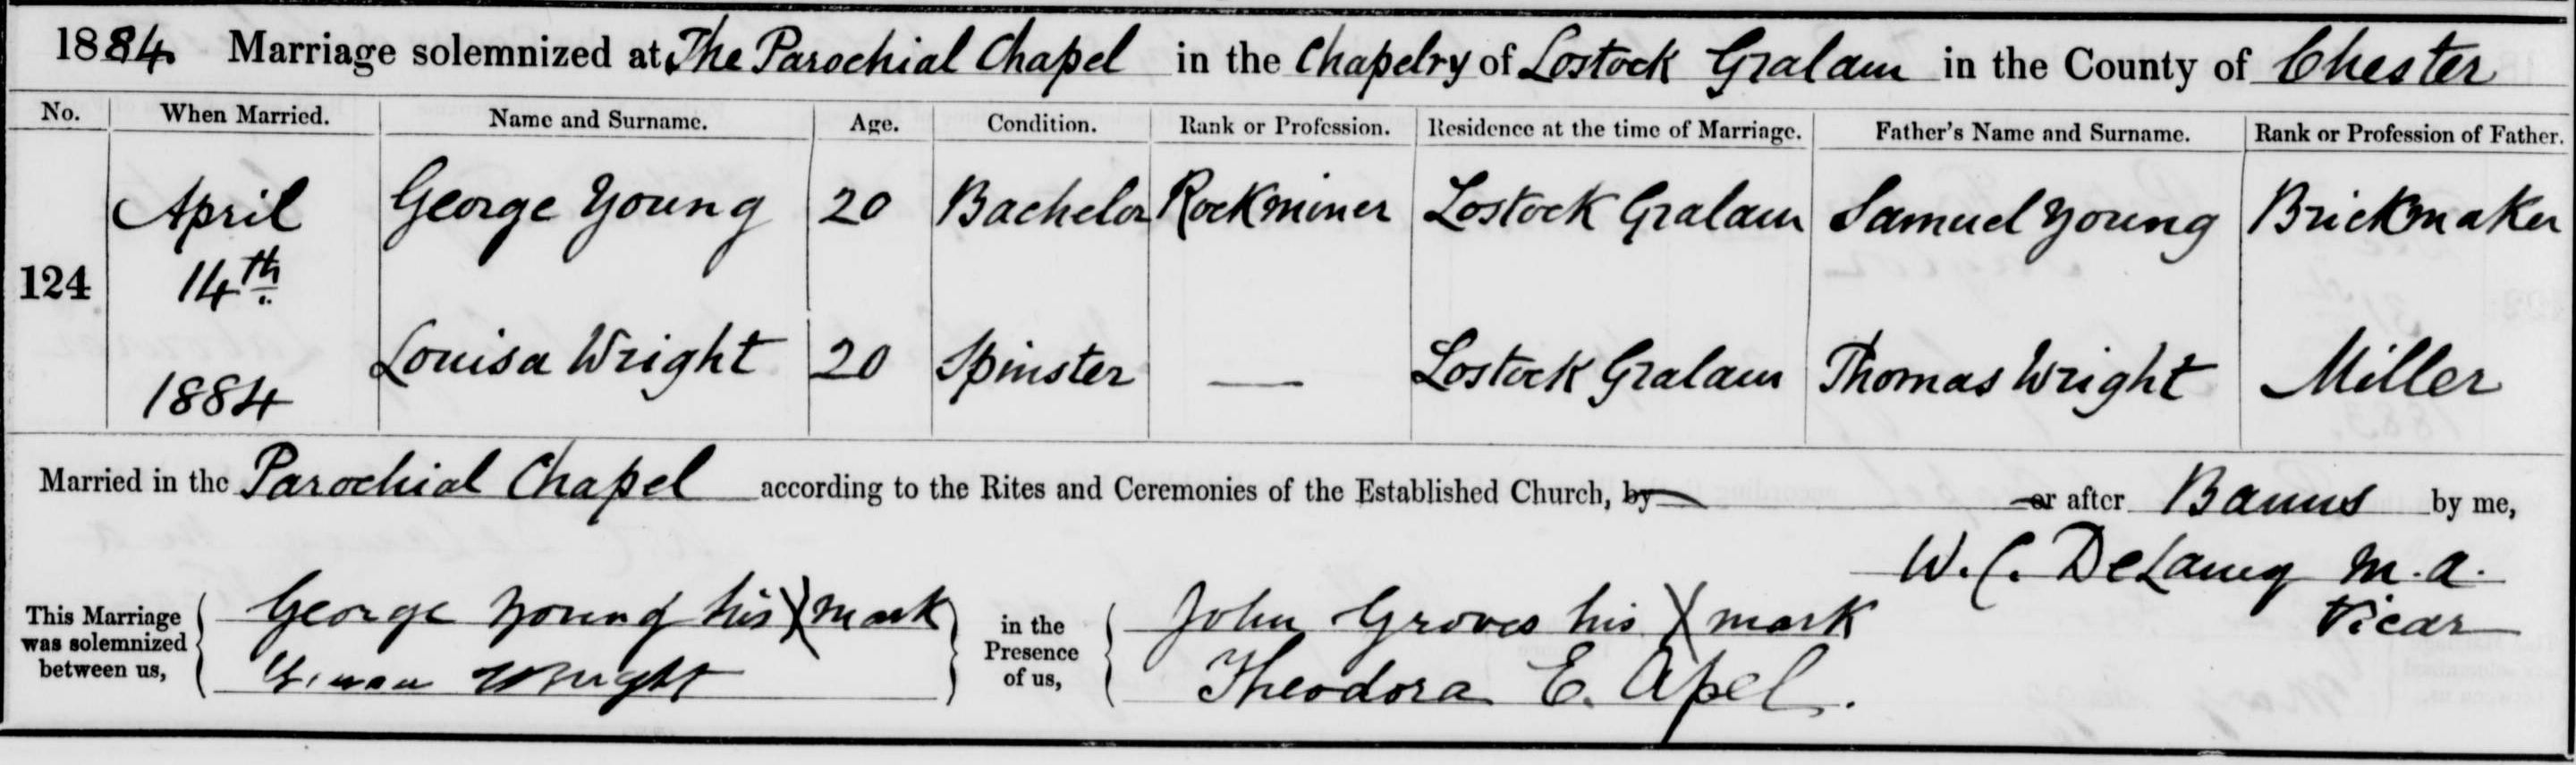 1884. Marriage solemnized at The Parochial Chapel in the Chapelry of Lostock Gralam in the County of Chester
No. When Married. Name and Surname. Age. Condition. Rank or Profession. Residence at the time of Marriage. Father's Name and Surname. Rank or Profession of Father.
April George Young 20 Bachelor Rockminer Lostock Gralam Samuel Young Brickmaker
124 14th
Louisa Wright 20 Spinster — Lostock Gralam Thomas Wright Miller
1884
Married in the Parochial Chapel according to the Rites and Ceremonies of the Established Church, by or after Banns by me,
W. C. DeLauney M.A.
Vicar
This Marriage was solemnized between us,
George Young his X mark
Wright
in the Presence of us,
John Groves his X mark
Theodora E. Apel.